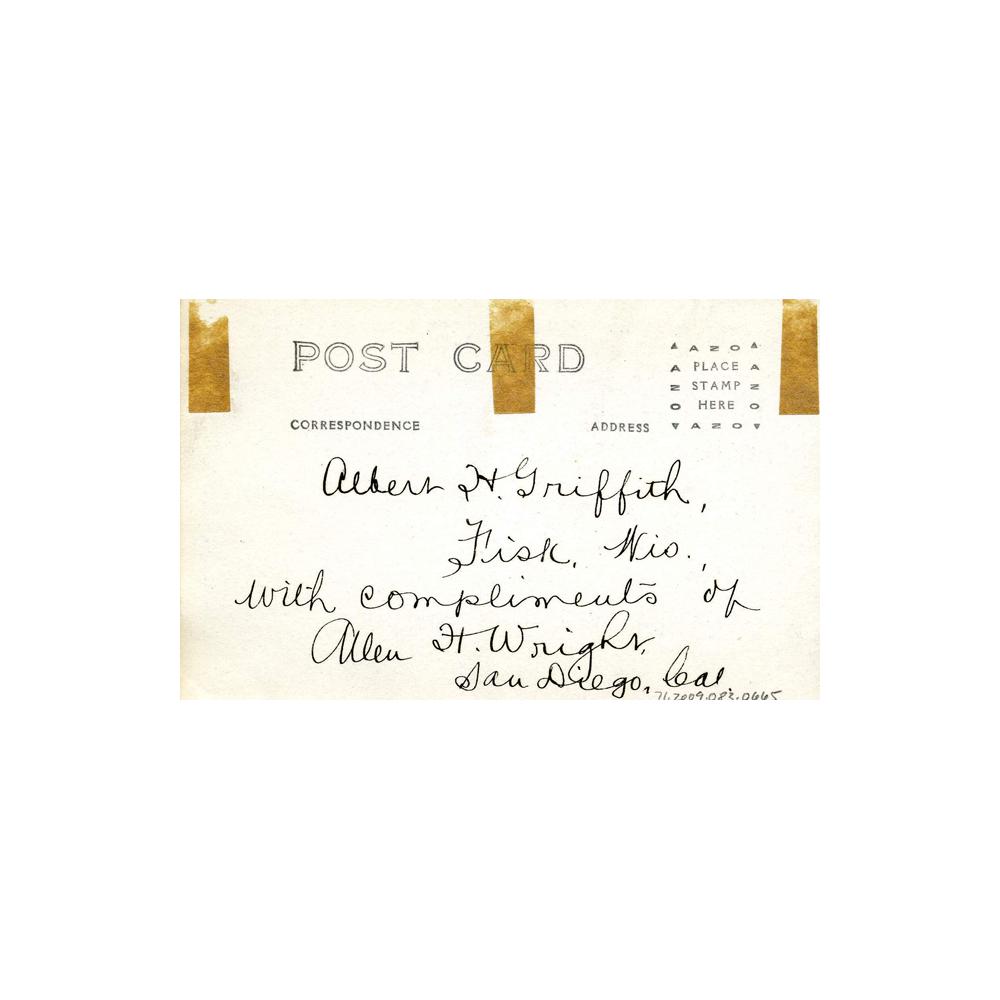 POST CARD
AZO
PLACE
STAMP
HERE
AZO
AZO
AZO
CORRESPONDENCE
ADDRESS
Albert H. Griffith,
Fisk, Wis.,
with compliments of
Allen H. Wright,
San Diego, Cal.
71.2009.083.0665